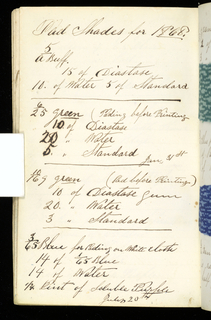 Pad Shades for 1868.
5
A Buff.
15 of Diastase
10. of Water 5 of Standard
6
23 Green (Pading before Printing
10 of Diastase
20 " Water
5 " Standard
June 21st
9 Green (Pad before Printing)
10 of Diastase Gum
20 " Water
3 " Standard
3
E3 Blue for Pading on White Cloth
14 of E3 Blue
14 of Water
Pint of Soluble Purple
July 20th